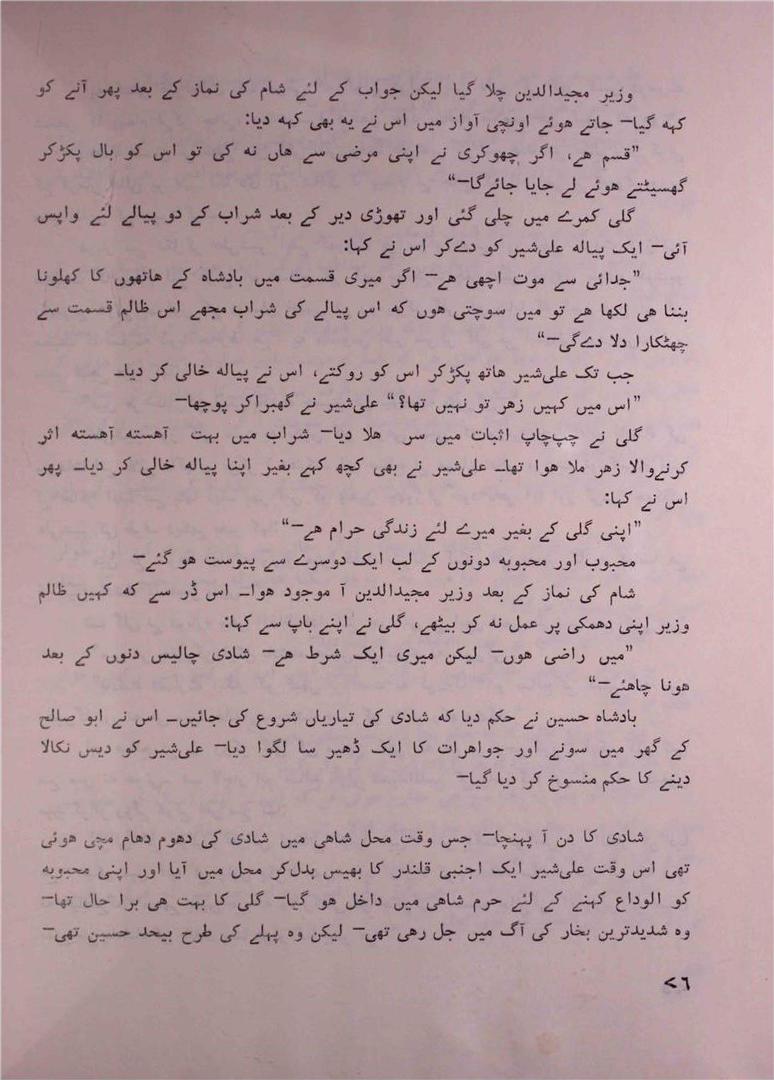 وزیر مجیدالدین چلا گیا لیکن جواب کے لئے شام کی نماز کے بعد پھر آنے کو
کہہ گیا— جاتے ہوئے اونچی آواز میں اس نے یہ بھی کہہ دیا:
”قسم ہے، اگر چھوکری نے اپنی مرضی سے ہاں نہ کی تو اس کو بال پکڑکر
گھسیٹتے ہوئے لے جایا جائےگا—“
گلی کمرے میں چلی گئی اور تھوڑی دیر کے بعد شراب کے دو پیالے لئے واپس
آئی— ایک پیالہ علی‌شیر کو دے‌کر اس نے کہا:
”جدائی سے موت اچھی ہے— اگر میری قسمت میں بادشاہ کے ہاتھوں کا کھلونا
بننا ہی لکھا ہے تو میں سوچتی ہوں کہ اس پیالے کی شراب مجھے اس ظالم قسمت سے
چھٹکارا دلا دےگی—“
جب تک علی‌شیر ہاتھ پکڑکر اس کو روکتے، اس نے پیالہ خالی کر دیا۔
”اس میں کہیں زہر تو نہیں تھا؟“ علی‌شیر نے گھبراکر پوچھا—
گلی نے چپ‌چاپ اثبات میں سر ہلا دیا— شراب میں بہت آہستہ آہستہ اثر
کرنے‌والا زہر ملا ہوا تھا۔ علی‌شیر نے بھی کچھ کہے بغیر اپنا پیالہ خالی کر دیا۔ پھر
اس نے کہا:
”اپنی گلی کے بغیر میرے لئے زندگی حرام ہے—“
محبوب اور محبوبہ دونوں کے لب ایک دوسرے سے پیوست ہو گئے—
شام کی نماز کے بعد وزیر مجیدالدین آ موجود ہوا۔ اس ڈر سے کہ کہیں ظالم
وزیر اپنی دھمکی پر عمل نہ کر بیٹھے، گلی نے اپنے باپ سے کہا:
”میں راضی ہوں— لیکن میری ایک شرط ہے— شادی چالیس دنوں کے بعد
ہونا چاہئے—“
بادشاہ حسین نے حکم دیا کہ شادی کی تیاریاں شروع کی جائیں۔ اس نے ابو صالح
کے گھر میں سونے اور جواہرات کا ایک ڈھیر سا لگوا دیا— علی‌شیر کو دیس نکالا
دینے کا حکم منسوخ کر دیا گیا—
شادی کا دن آ پہنچا— جس وقت محل شاہی میں شادی کی دھوم دھام مچی ہوئی
تھی اس وقت علی‌شیر ایک اجنبی قلندر کا بھیس بدل‌کر محل میں آیا اور اپنی محبوبہ
کو الوداع کہنے کے لئے حرم شاہی میں داخل ہو گیا— گلی کا بہت ہی برا حال تھا—
وہ شدیدترین بخار کی آگ میں جل رہی تھی— لیکن وہ پہلے کی طرح بیحد حسین تھی—
۷۶